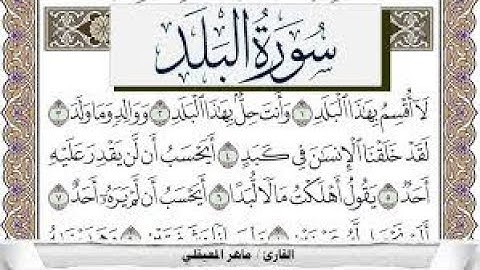 سُورَةُ الْبَلَدِ
لَا أُقْسِمُ بِهَٰذَا الْبَلَدِ ١ وَأَنتَ حِلٌّ بِهَٰذَا الْبَلَدِ ٢ وَوَالِدٍ وَمَا وَلَدَ ٣
لَقَدْ خَلَقْنَا الْإِنسَٰنَ فِي كَبَدٍ ٤ أَيَحْسَبُ أَن لَّن يَقْدِرَ عَلَيْهِ
أَحَدٌ ٥ يَقُولُ أَهْلَكْتُ مَالًا لُّبَدًا ٦ أَيَحْسَبُ أَن لَّمْ يَرَهُۥ أَحَدٌ ٧
القارئ / ماهر المعيقلي